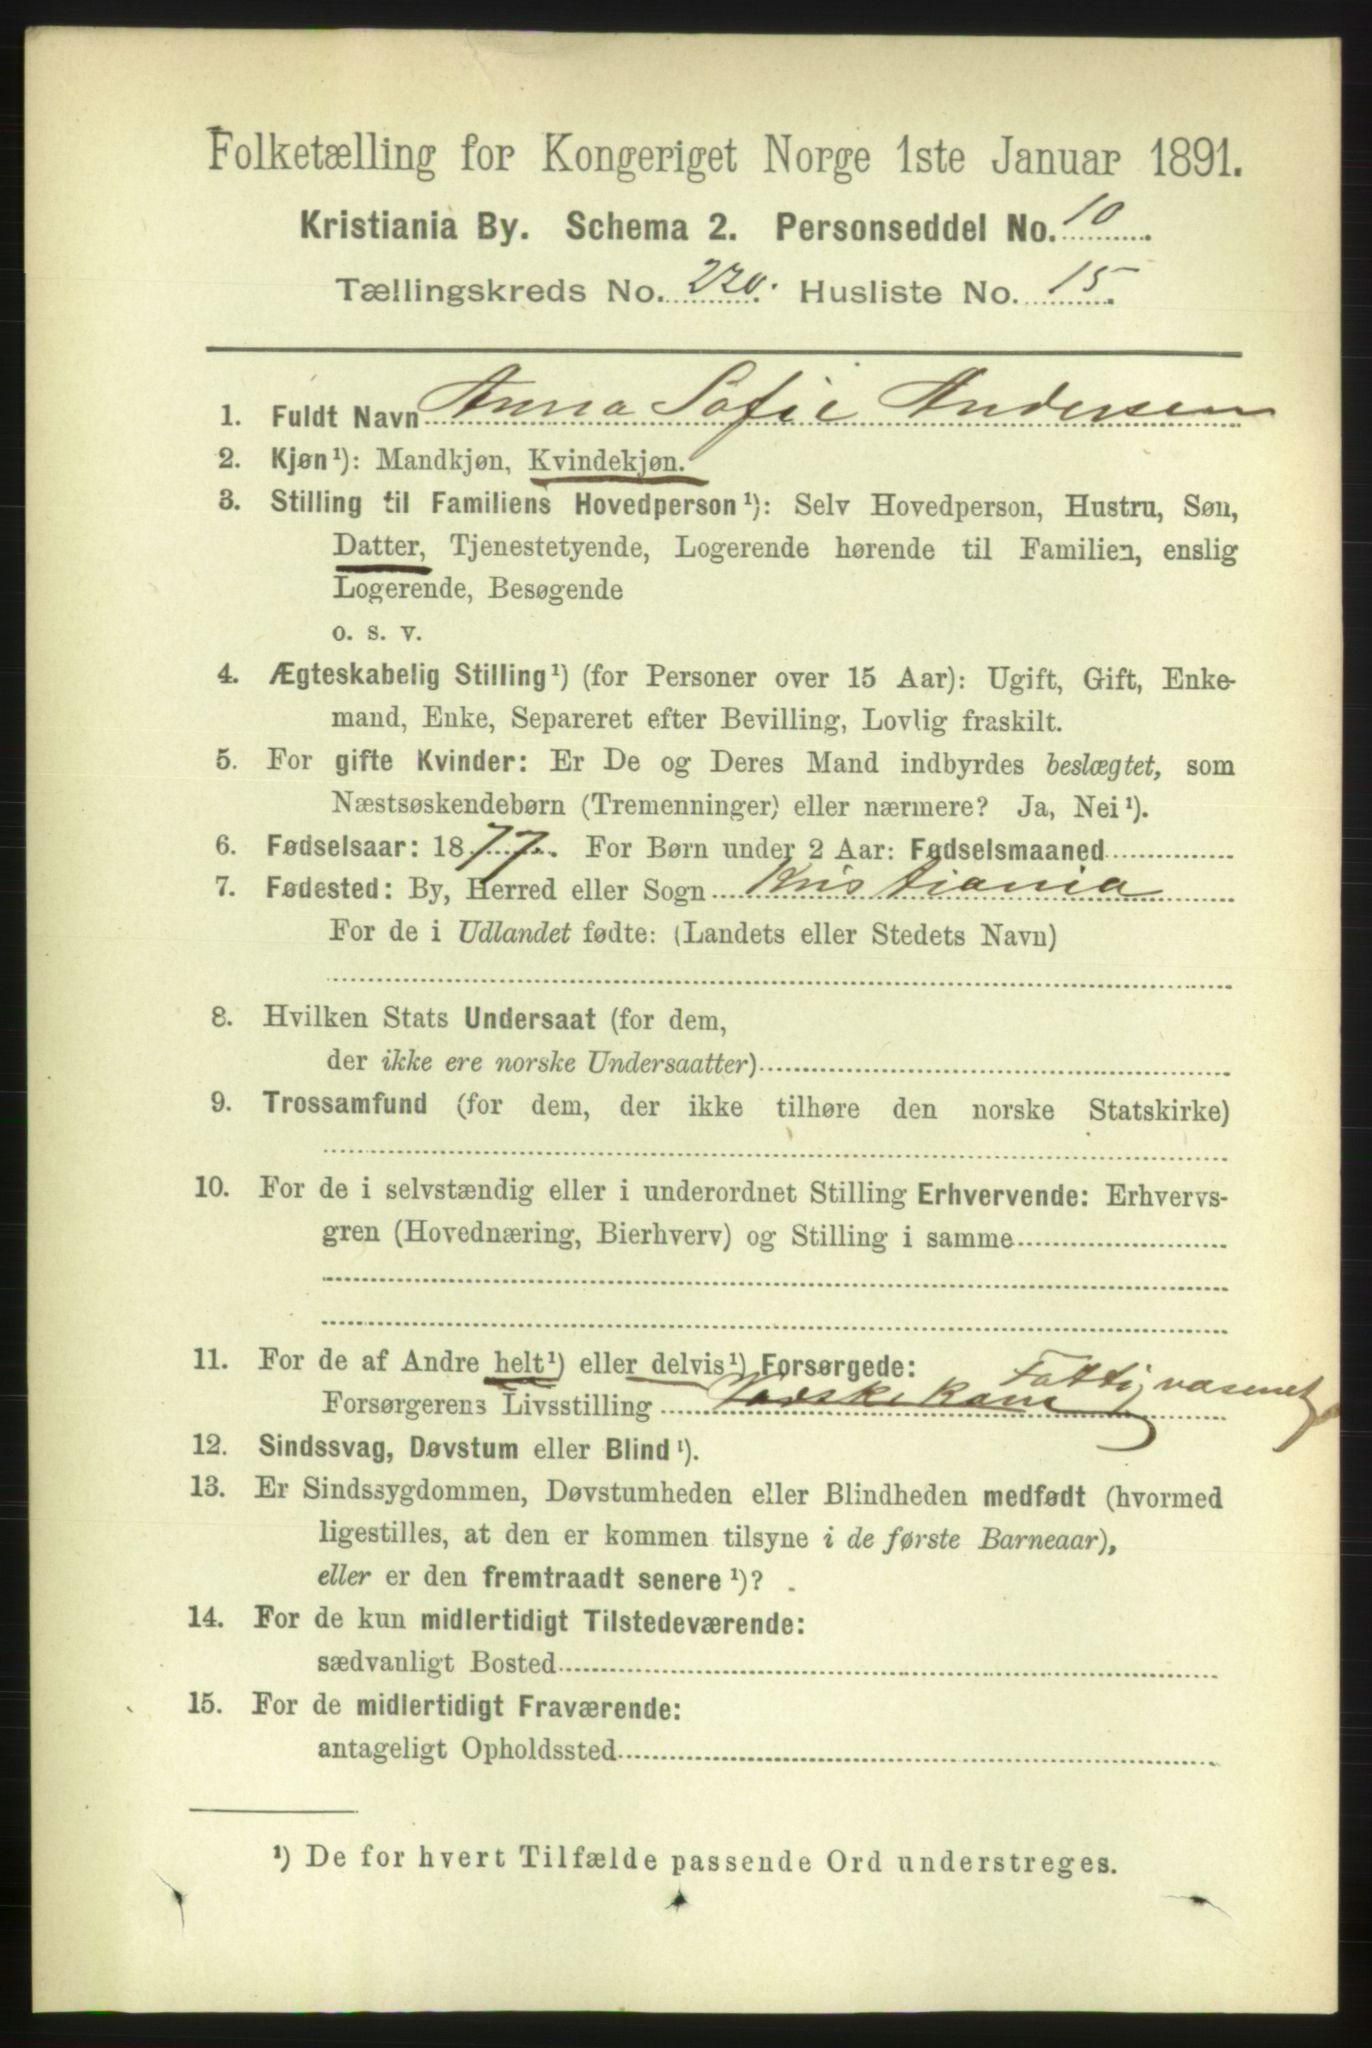 Folketælling for Kongeriget Norge 1ste Januar 1891.
Kristiania By. Schema 2. Personseddel No. 10
Tællingskreds No. 220. Husliste No. 15.
1. Fuldt Navn Anna Sofie Andersen
2. Kjøn¹): Mandkjøn, Kvindekjøn.
3. Stilling til Familiens Hovedperson¹): Selv Hovedperson, Hustru, Søn,
Datter, Tjenestetyende, Logerende hørende til Familien, enslig
Logerende, Besøgende
o. s. v.
4. Ægteskabelig Stilling¹) (for Personer over 15 Aar): Ugift, Gift, Enke-
mand, Enke, Separeret efter Bevilling, Lovlig fraskilt.
5. For gifte Kvinder: Er De og Deres Mand indbyrdes beslægtet, som
Næstsøskendebørn (Tremenninger) eller nærmere? Ja, Nei¹).
6. Fødselsaar: 1877. For Børn under 2 Aar: Fødselsmaaned
7. Fødested: By, Herred eller Sogn Kristiania
For de i Udlandet fødte: (Landets eller Stedets Navn)
8. Hvilken Stats Undersaat (for dem,
der ikke ere norske Undersaatter)
9. Trossamfund (for dem, der ikke tilhøre den norske Statskirke)
10. For de i selvstændig eller i underordnet Stilling Erhvervende: Erhvervs-
gren (Hovednæring, Bierhverv) og Stilling i samme
11. For de af Andre helt¹) eller delvis¹) Forsørgede:
Forsørgerens Livsstilling Vadskekone Fattigvasenet
12. Sindssvag, Døvstum eller Blind¹).
13. Er Sindssygdommen, Døvstumheden eller Blindheden medfødt (hvormed
ligestilles, at den er kommen tilsyne i de første Barneaar),
eller er den fremtraadt senere¹)?
14. For de kun midlertidigt Tilstedeværende:
sædvanligt Bosted
15. For de midlertidigt Fraværende:
antageligt Opholdssted
¹) De for hvert Tilfælde passende Ord understreges.